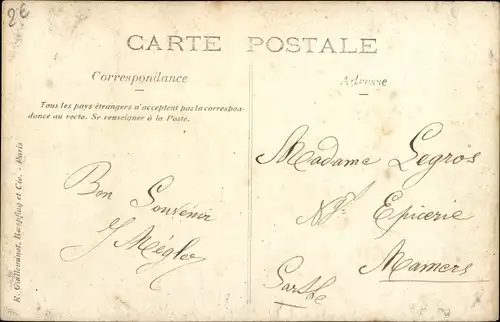 2€
CARTE POSTALE
Correspondance
Adresse
Tous les pays étrangers n'acceptent pas la correspon-
dance au recto. Se renseigner à la Poste.
R. Guilleminot, Bœspflug et Cie. - Paris
Bon Souvenir
Madame Legros
Nte Epicerie
Mamers
Sarthe